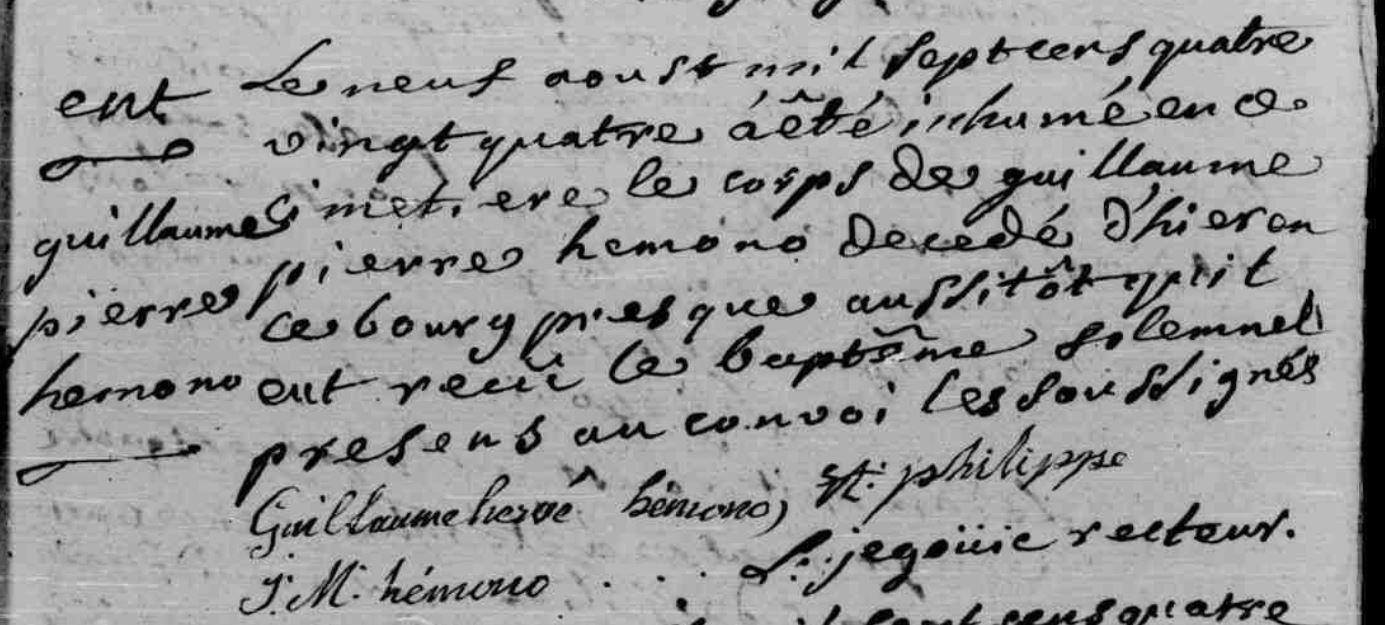 ent
guillaume
pierre
hemono
Le neuf aoust mil sept cens quatre
vingt quatre à êté inhumé en ce
cimetiere le corps de guillaume
pierre hemono decedé d'hier en
ce bourg presque aussitôt qu'il
eut recû le baptême solemnel
presens au convoi les soussignés
Guillaume hervé hémono, st: philippe
J. M. hémono . . . L: jegoüic recteur.
sept cens quatre